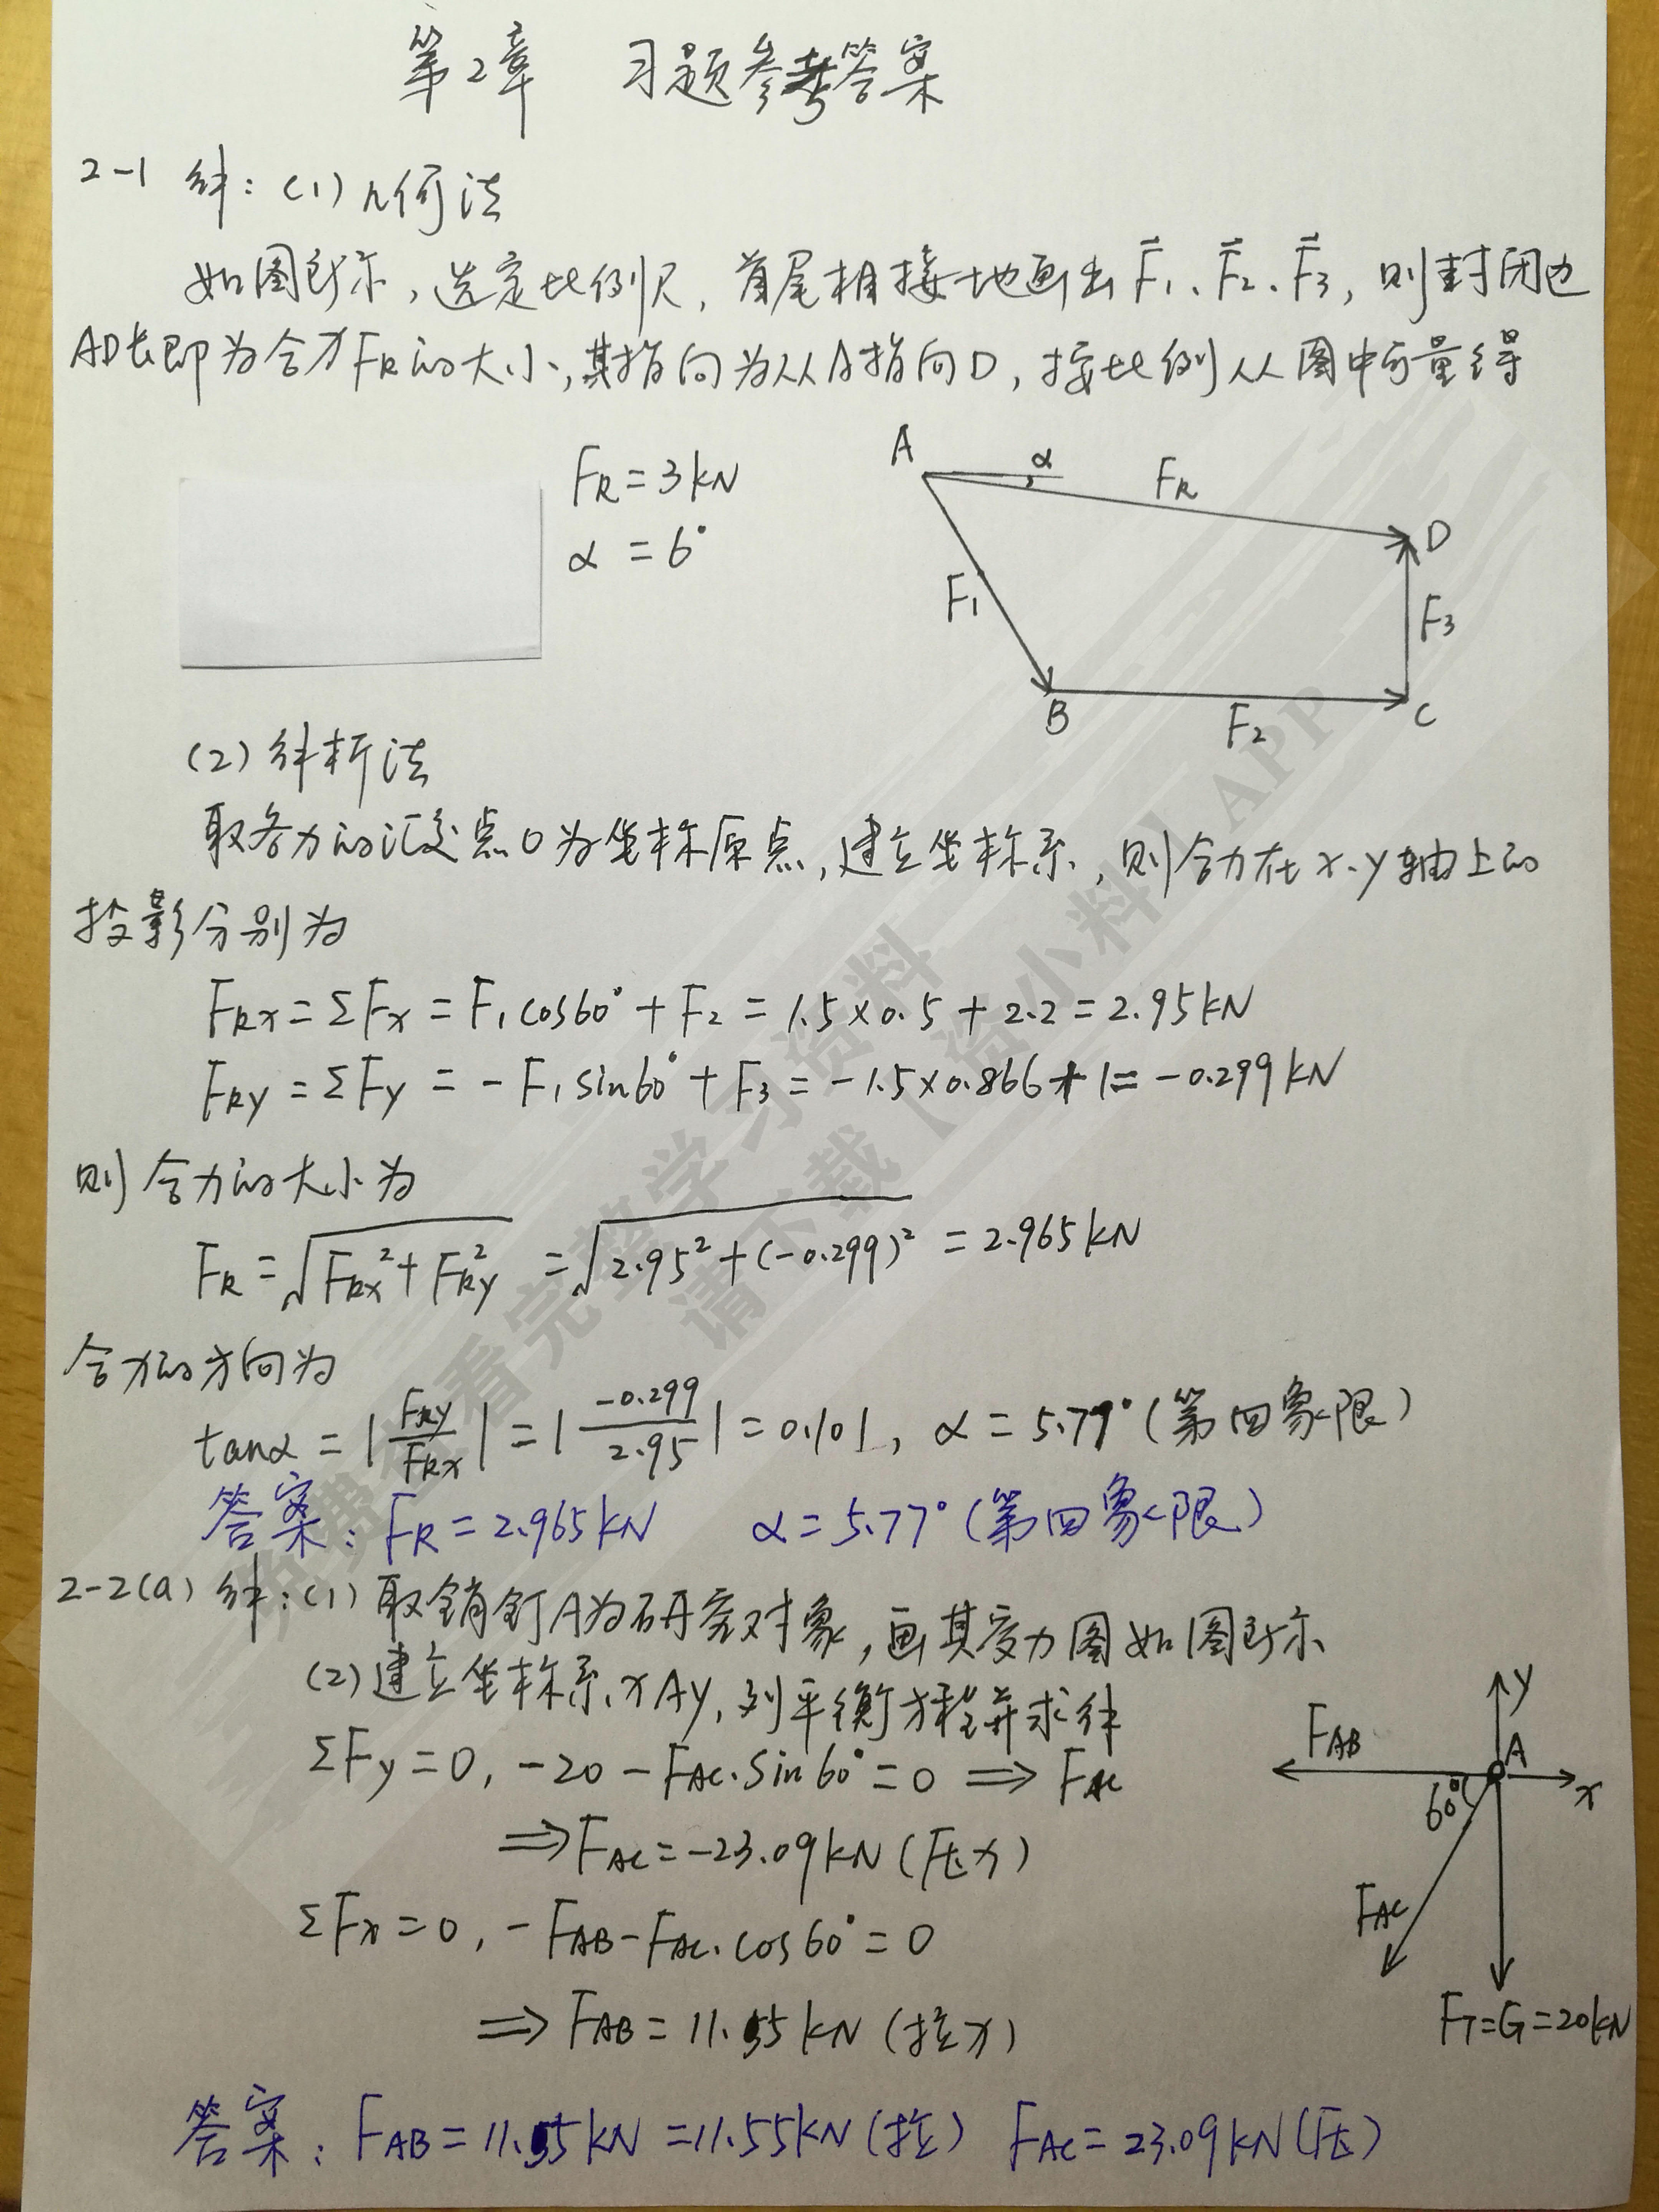 第2章 习题参考答案
2-1 解:(1)几何法
如图所示,选定比例尺,首尾相接地画出F⃗₁、F⃗₂、F⃗₃,则封闭边
AD长即为合力F_R的大小,其指向为从A指向D,按比例从图中可量得
F_R=3kN
α=6°
A α F_R D
F₁ F₃
B F₂ C
(2)解析法
取各力的汇交点O为坐标原点,建立坐标系,则合力在x、y轴上的
投影分别为
F_Rx=ΣF_x=F₁cos60°+F₂=1.5×0.5+2.2=2.95kN
F_Ry=ΣF_y=-F₁sin60°+F₃=-1.5×0.866+1=-0.299kN
则合力的大小为
F_R=√(F_Rx²+F_Ry²)=√(2.95²+(-0.299)²)=2.965kN
合力的方向为
tanα=|F_Ry/F_Rx|=|-0.299/2.95|=0.101,α=5.77°(第四象限)
答案:F_R=2.965kN α=5.77°(第四象限)
2-2(a) 解:(1)取销钉A为研究对象,画其受力图如图所示
(2)建立坐标系xAy,列平衡方程并求解
ΣF_y=0,-20-F_AC·sin60°=0⇒F_AC
⇒F_AC=-23.09kN(压力)
ΣF_x=0,-F_AB-F_AC·cos60°=0
⇒F_AB=11.55kN(拉力)
y
F_AB A x
60°
F_AC
F_T=G=20kN
答案:F_AB=11.55kN=11.55kN(拉) F_AC=23.09kN(压)
免费查看完整学习资料
请下载【资小料】APP